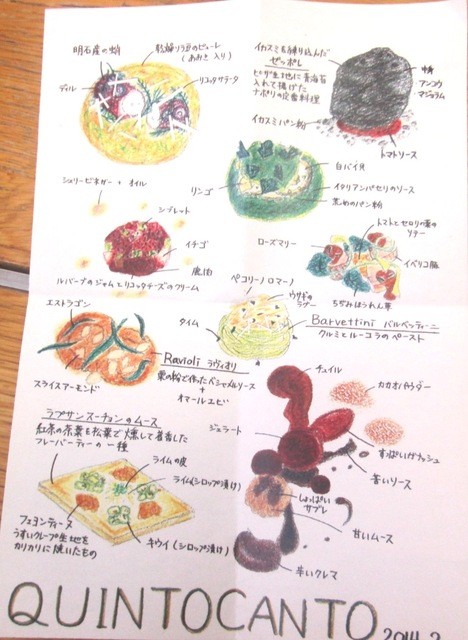 明石産の蛸
乾燥ソラ豆のピューレ
(あおさ入り)
ディル
リコッタサラータ
シェリービネガー + オイル
イカスミを練り込んだ
ゼッポレ
ピザ生地に青海苔
入れて揚げた
ナポリの定番料理
イカスミパン粉
アンコウ
マジョラム
トマトソース
リンゴ
白バイ貝
イタリアンパセリのソース
黒めのパン粉
シブレット
イチゴ
鹿肉
ルバーブのジャムとリコッタチーズのクリーム
トマトとセロリの葉の
ソテー
ローズマリー
イベリコ豚
ちぢみほうれん草
ペコリーノロマーノ
ウサギの
ラグー
タイム
Barvettini バルベッティーニ
クルミとルーコラのペースト
エストラゴン
Ravioli ラヴィオリ
栗の粉で作ったベシャメルソース
+
オマールエビ
スライスアーモンド
チュイル
カカオパウダー
ジェラート
すっぱいガナッシュ
苦いソース
しょっぱい
サブレ
甘いムース
辛いクレマ
ラプサンスーチョンのムース
紅茶の茶葉を松葉で燻して着香した
フレーバーティーの一種
ライムの皮
ライム(シロップ漬け)
フェヨンティーヌ
うすいクレープ生地を
カリカリに焼いたもの
キウイ(シロップ漬け)
QUINTOCANTO
2014.2